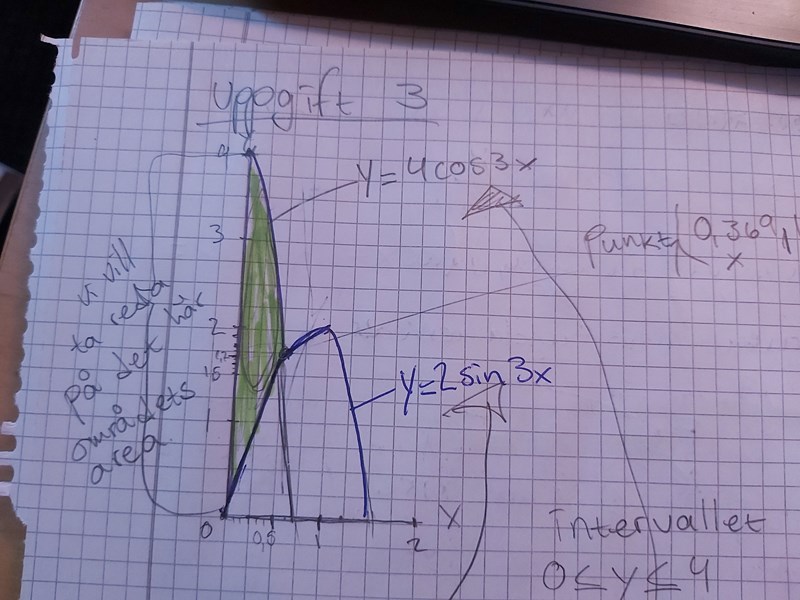 Uppgift 3
4
y=4cos3x
3
Punkt(0,369,1
x
vi vill
ta reda
på det här
områdets
area
2
1,5
y=2sin3x
1
0
0,5
1
2
x
Intervallet
0≤y≤4